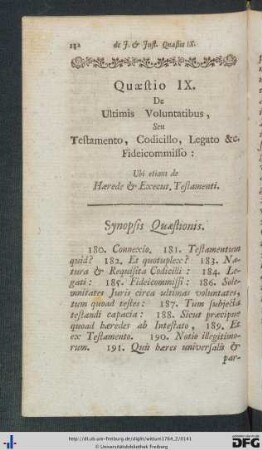 182 de J. & Just. Quæstio IX.
Quæstio IX.
De
Ultimis Voluntatibus,
Seu
Testamento, Codicillo, Legato &c.
Fideicommisso:
Ubi etiam de
Hærede & Execut. Testamenti.
Synopsis Quæstionis.
180. Connexio. 181. Testamentum
quid? 182. Et quotuplex? 183. Na-
tura & Requisita Codicilli: 184. Le-
gati: 185. Fideicommissi: 186. Sole-
mnitates Juris circa ultimas voluntates,
tum quoad testes: 187. Tum subjecta
testandi capacia: 188. Sicut præcipue
quoad hæredes ab Intestato, 189. Et
ex Testamento. 190. Notio illegitimo-
rum. 191. Quis hæres universalis &
par-
http://dl.ub.uni-freiburg.de/diglit/
© Universitätsbibliothek Freiburg
DFG